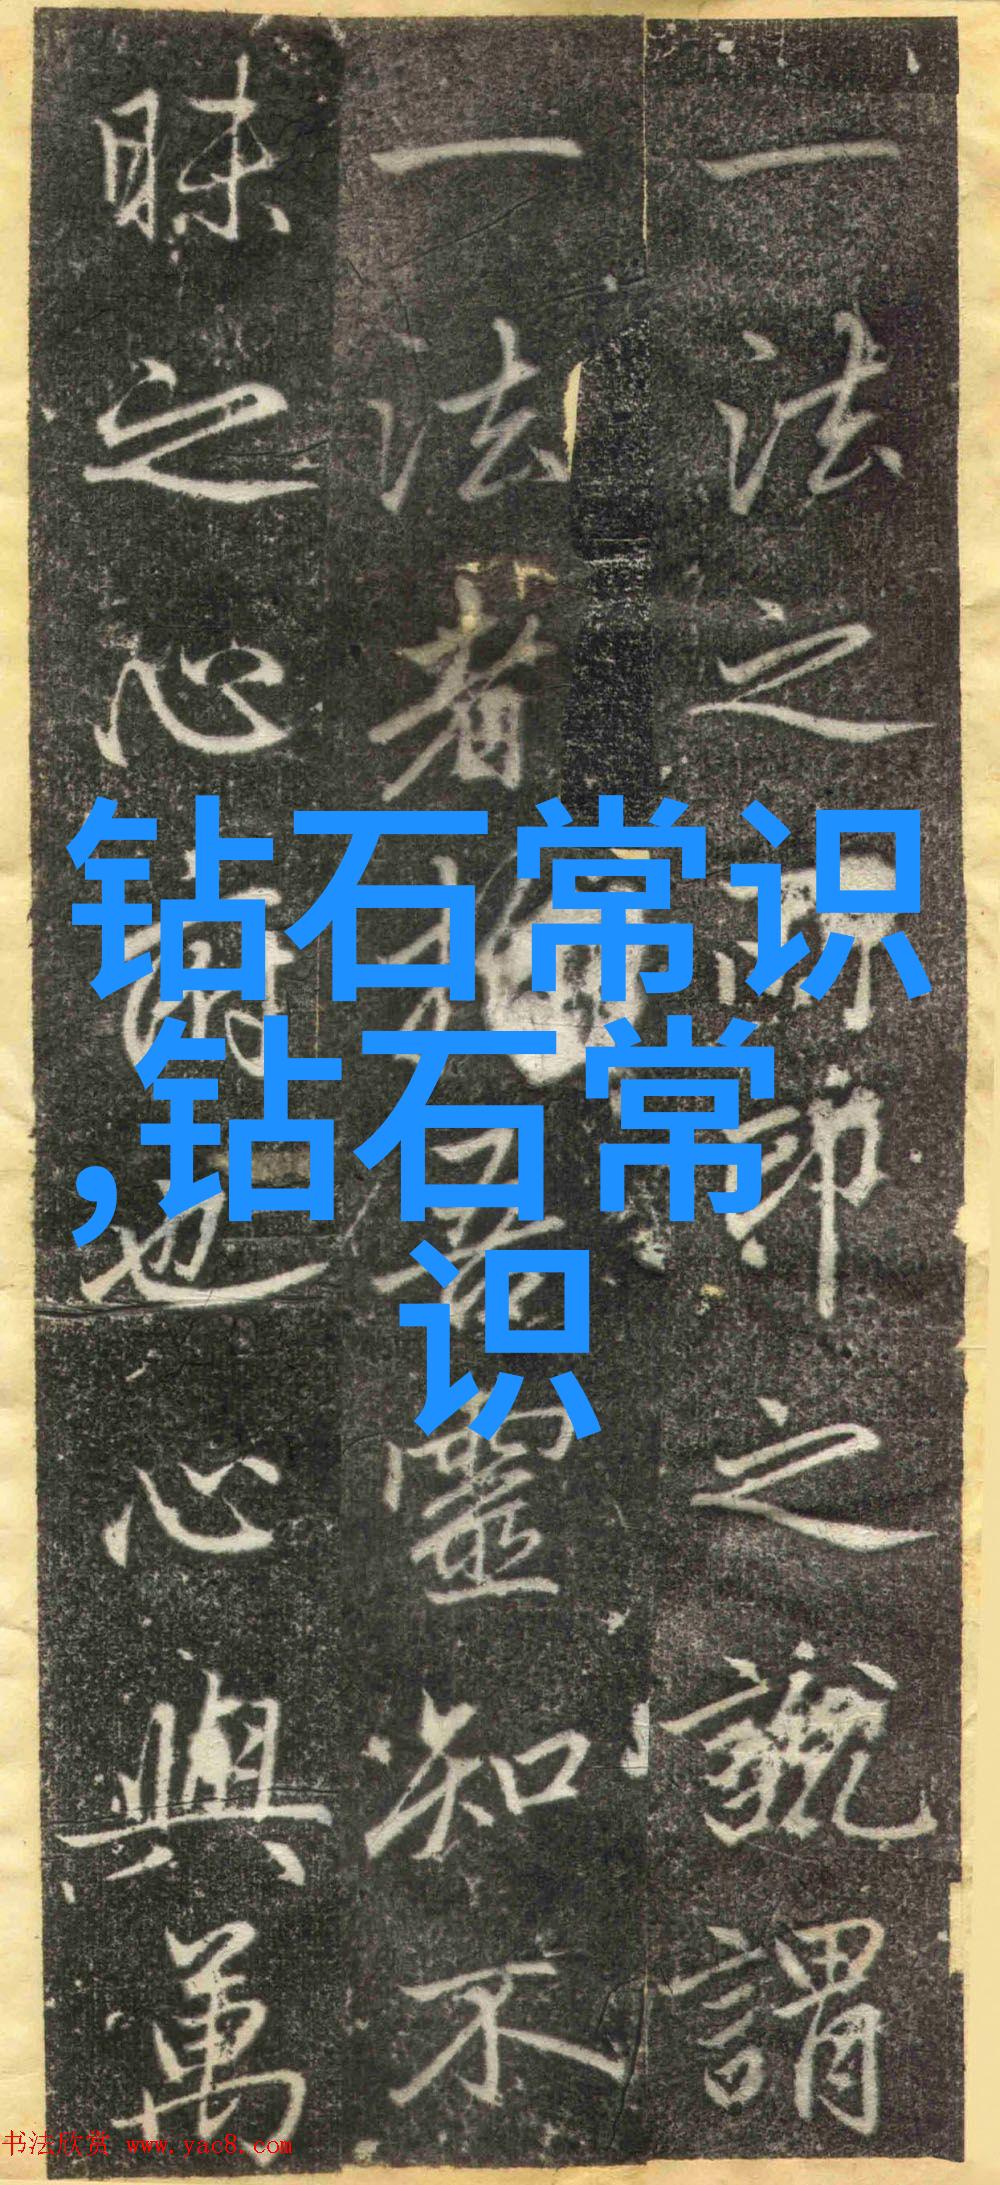 钻石常识
,钻石常
识
一法之印之謂
一法者靈知不
昧之心也心與萬
书法欣赏 www.yac8.com